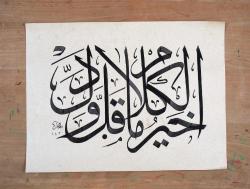 خير الكلام ما قلّ ودلّ